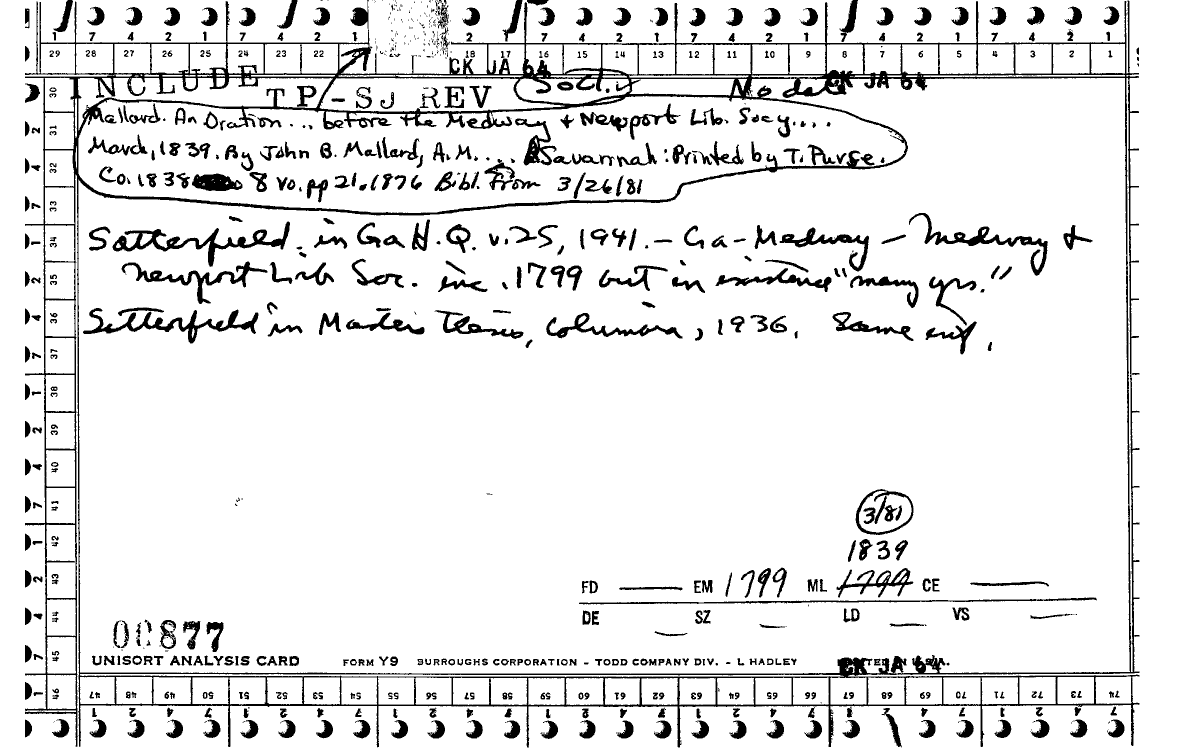 7 4 2 1 7 4 2 1 2 1 7 4 2 1 7 4 2 1 7 4 2 1
29 28 27 26 25 24 23 22 18 17 16 15 14 13 12 11 10 9 8 7 6 5 4 3 2 1
CK JA 64
INCLUDE TP-SJ REV Socl. No date CK JA 64
Mallard. An Oration... before the Medway & Newport Lib. Socy....
March, 1839. By John B. Mallard, A.M.... Savannah: Printed by T. Purse.
Co. 1838 8 vo. pp 21. 1876 Bibl. From 3/26/81
Satterfield. in Ga H.Q. v.25, 1941. - Ga - Medway - Medway &
Newport Lib Soc. inc. 1799 but in existence "many yrs."
Satterfield in Masters Thesis, Columbia, 1936. Same inf.
30
2 31
4 32
7 33
1 34
2 35
4 36
7 37
1 38
2 39
4 40
7 41
1 42
2 43
4 44
7 45
1 46
3/81
1839
FD — EM 1799 ML 1799 CE —
DE — SZ — LD — VS —
00877
UNISORT ANALYSIS CARD FORM Y9 BURROUGHS CORPORATION - TODD COMPANY DIV. - L HADLEY PRINTED IN U.S.A.
CK JA 64
47 48 49 50 51 52 53 54 55 56 57 58 59 60 61 62 63 64 65 66 67 68 69 70 71 72 73 74
1 2 4 7 1 2 4 7 1 2 4 7 1 2 4 7 1 2 4 7 1 2 4 7 1 2 4 7